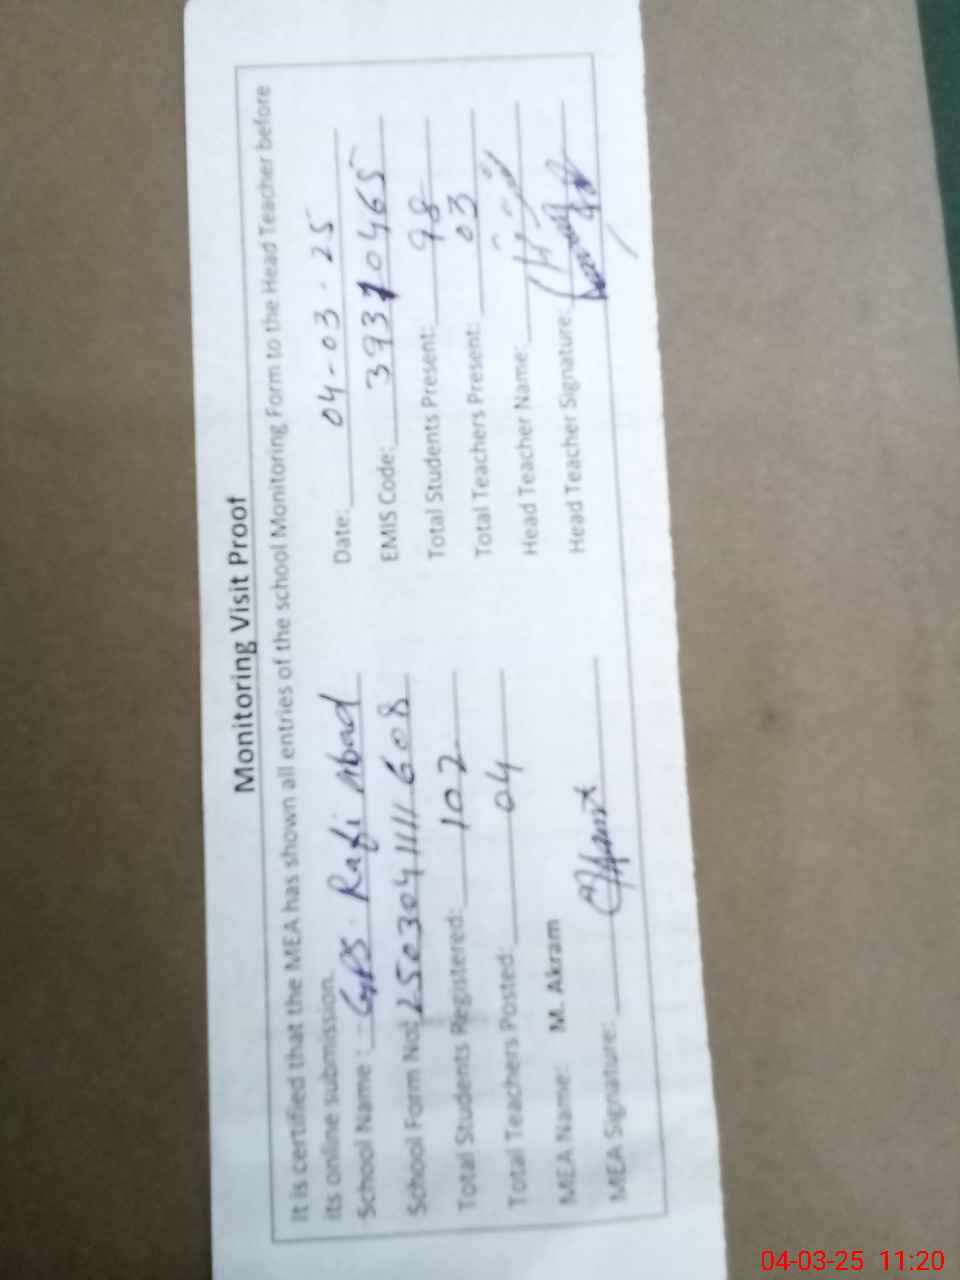 Monitoring Visit Proof
It is certified that the MEA has shown all entries of the school Monitoring Form to the Head Teacher before
its online submission.
School Name : GPS. Rafi Abad
Date: 04-03-25
School Form No: 2503041111608
EMIS Code: 39310465
Total Students Registered: 102
Total Students Present: 98
Total Teachers Posted: 04
Total Teachers Present: 03
MEA Name: M. Akram
Head Teacher Name:
MEA Signature:
Head Teacher Signature:
04-03-25 11:20